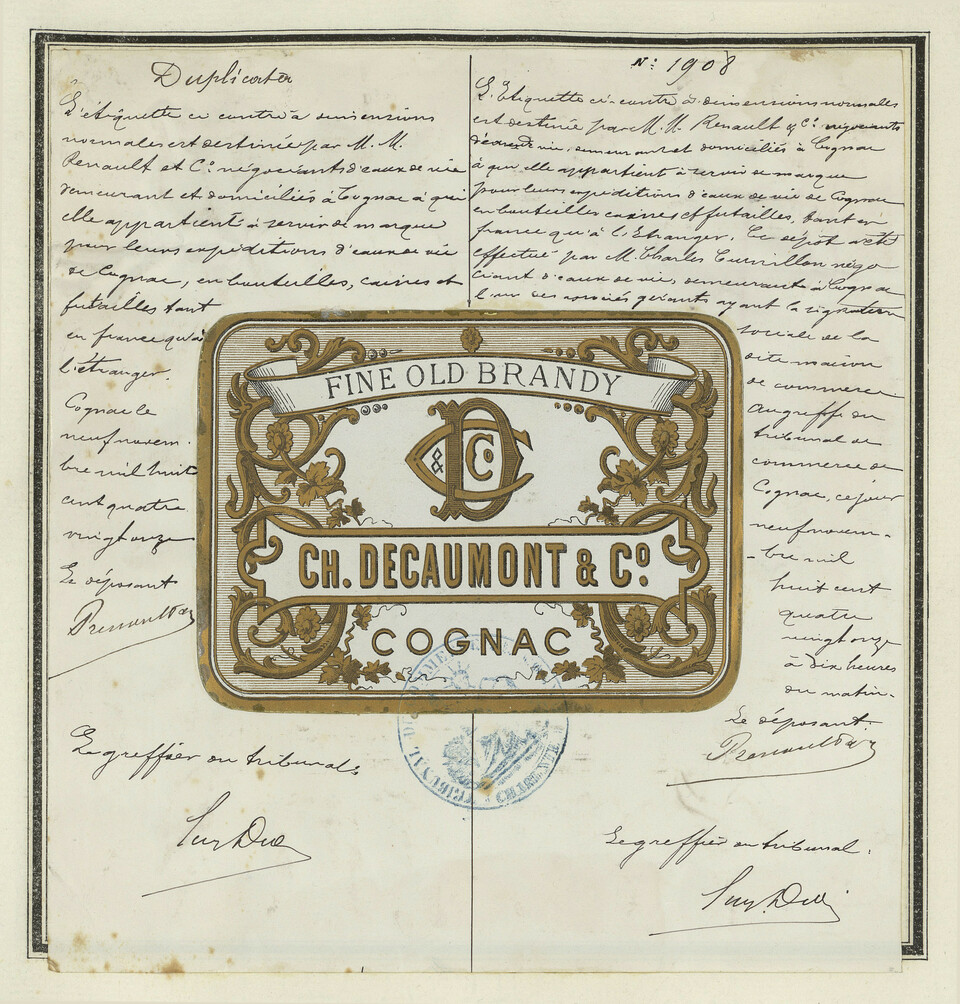 Duplicata
L'étiquette ci contre à dimensions
normales est destinée par M. M.
Renault et Cº négociants d'eaux de vie
demeurant et domiciliés à Cognac à qui
elle appartient à servir de marque
pour leurs expéditions d'eaux de vie
de Cognac, en bouteilles, caisses et
futailles tant
en france qu'à
l'étranger.
Cognac le
neuf novem-
bre mil huit
cent quatre
vingt onze
Le déposant
Le greffier du tribunal
Nº 1908
L'Etiquette ci-contre à dimensions normales
est destinée par M. M. Renault & Cº négociants
d'eaux de vie, demeurant et domiciliés à Cognac
à qui elle appartient à servir de marque
pour leurs expéditions d'eaux de vie de Cognac
en bouteilles caisses et futailles, tant en
france qu'à l'Etranger. Ce dépôt a été
effectué par M. Charles négo
ciant d'eaux de vie, demeurant à Cognac
l'un des associés gérants ayant la signature
sociale de la
dite maison
de commerce
au greffe du
tribunal de
commerce de
Cognac, ce jour
neuf novem-
bre mil
huit cent
quatre
vingt onze
à dix heures
du matin.
Le déposant
Le greffier du tribunal.
FINE OLD BRANDY
D C & Cº
CH. DECAUMONT & Cº.
COGNAC